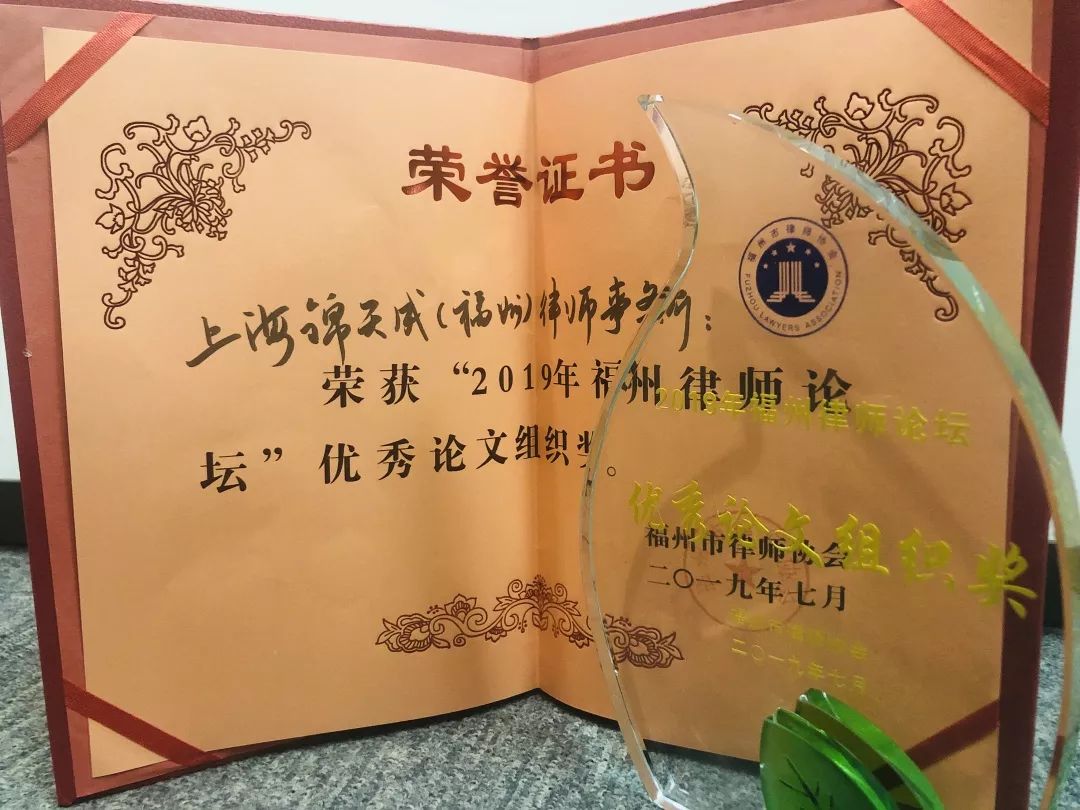 荣誉证书
上海锦天成（福州）律师事务所：
荣获“2019年福州律师论
坛”优秀论文组织奖。
福州市律师协会
二〇一九年七月
福州市律师协会
FUZHOU LAWYERS ASSOCIATION
2019年福州律师论坛
优秀论文组织奖
福州市律师协会
二〇一九年七月